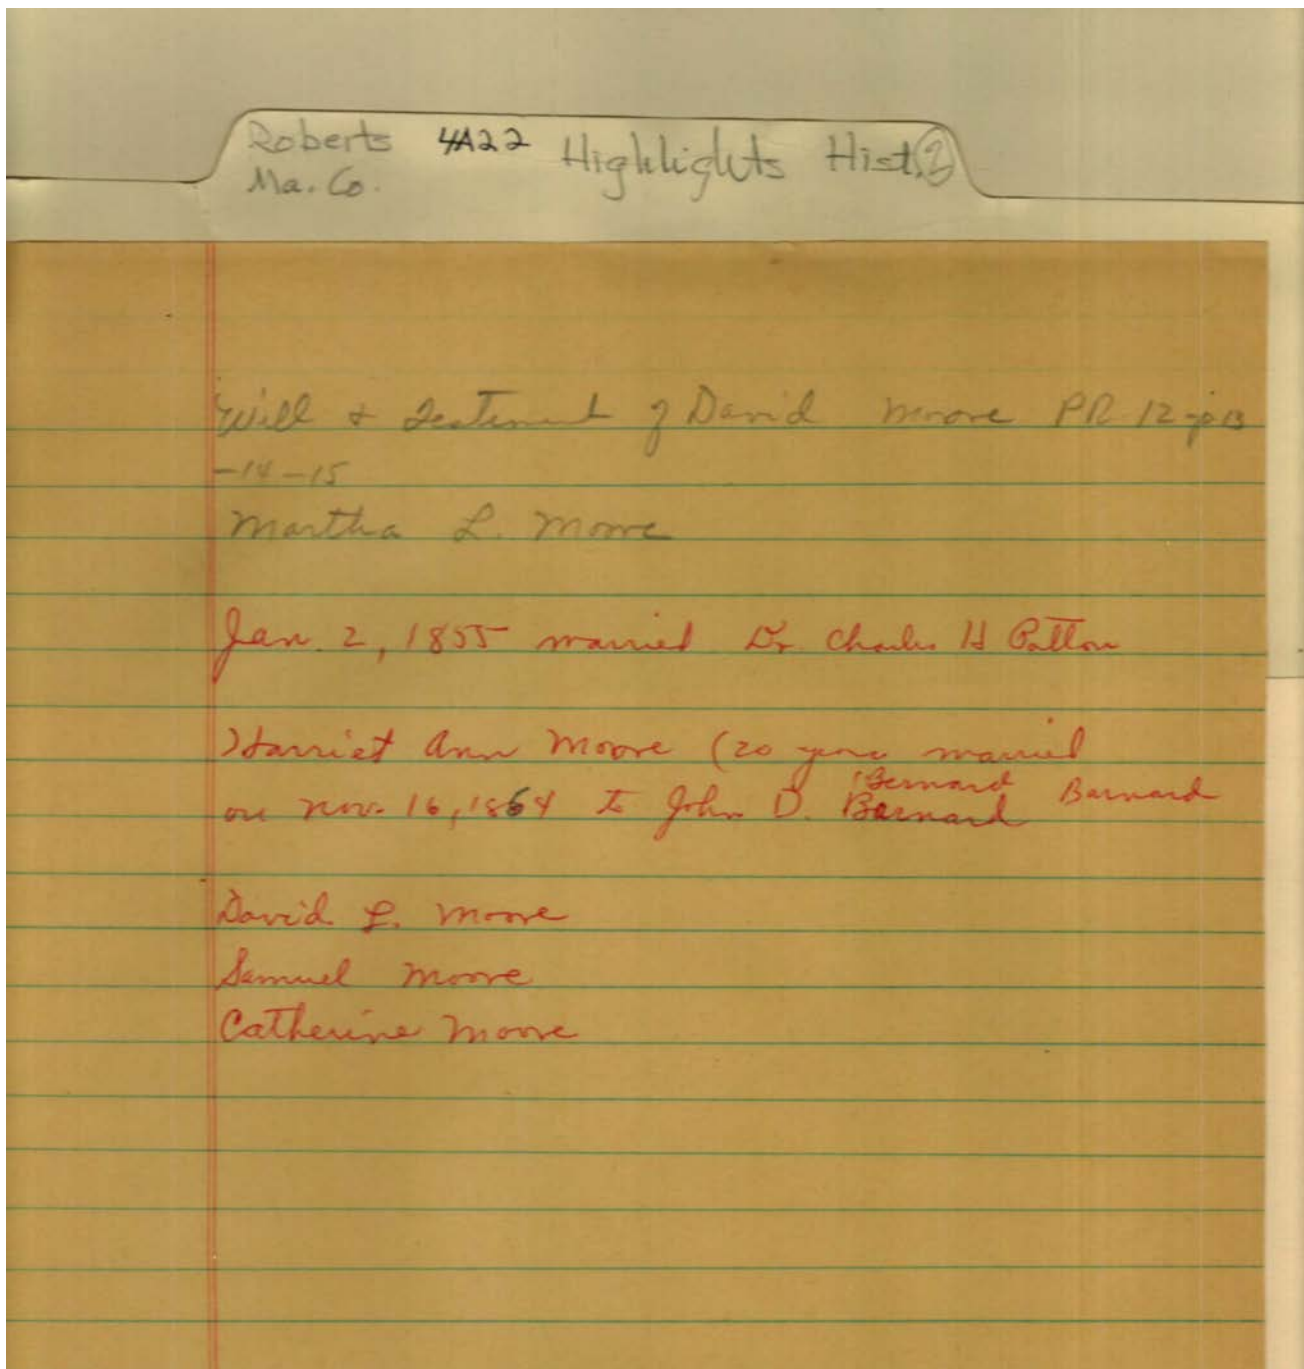 Roberts 4A22 Highlights Hist. 2
Ma. Co.
Will & Testiment of David Moore PR 12 p 13
-14-15
Martha L. Moore
Jan. 2, 1855 married Dr. Charles H Patton
Harriet Ann Moore (20 years married
on Nov. 16, 1864 to John D. Barnard (Bernard Barnard
David L. Moore
Samuel Moore
Catherine Moore